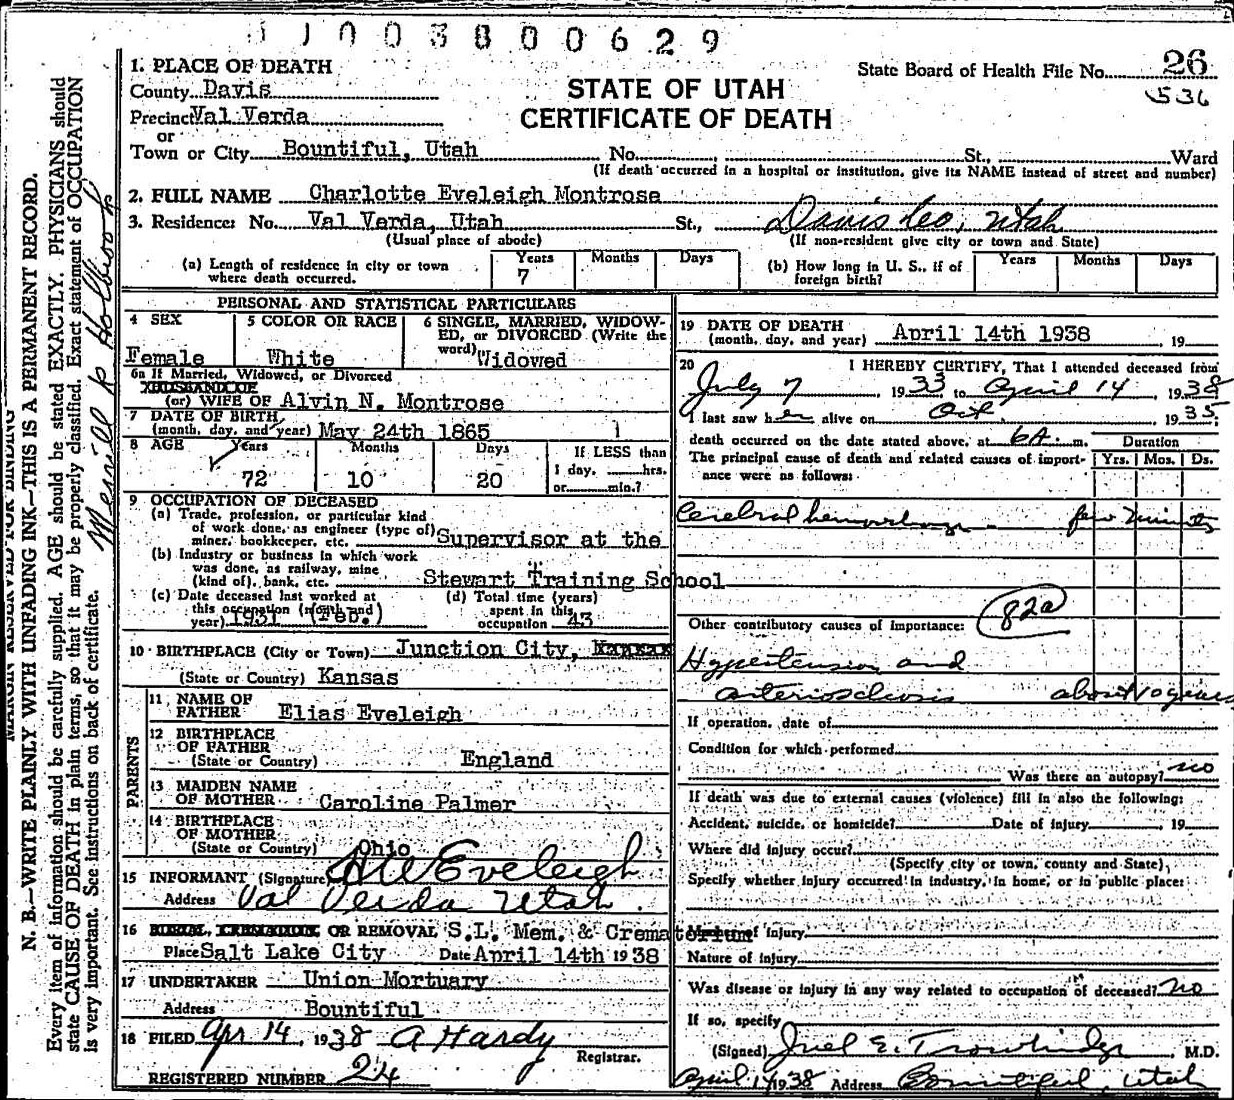 1 1 0 0 3 8 0 0 6 2 9
1. PLACE OF DEATH
County Davis
Precinct Val Verda
or
Town or City Bountiful, Utah No. St., Ward
(If death occurred in a hospital or institution, give its NAME instead of street and number)
STATE OF UTAH
CERTIFICATE OF DEATH
State Board of Health File No. 26
536
2. FULL NAME Charlotte Eveleigh Montrose
3. Residence: No. Val Verda, Utah St., Davis Co, Utah
(Usual place of abode) (If non-resident give city or town and State)
(a) Length of residence in city or town where death occurred. Years 7 Months Days
(b) How long in U. S., if of foreign birth? Years Months Days
PERSONAL AND STATISTICAL PARTICULARS
4 SEX Female
5 COLOR OR RACE White
6 SINGLE, MARRIED, WIDOWED, or DIVORCED (Write the word) Widowed
6a If Married, Widowed, or Divorced
(or) WIFE OF Alvin N. Montrose
7 DATE OF BIRTH
(month, day, and year) May 24th 1865
8 AGE Years 72 Months 10 Days 20
If LESS than
1 day, hrs.
or min.?
9 OCCUPATION OF DECEASED
(a) Trade, profession, or particular kind
of work done, as engineer (type of)
miner, bookkeeper, etc. Supervisor at the
(b) Industry or business in which work
was done, as railway, mine
(kind of), bank, etc. Stewart Training School
(c) Date deceased last worked at
this occupation (month and
year) 1931 (Feb.)
(d) Total time (years)
spent in this
occupation 43
10 BIRTHPLACE (City or Town) Junction City,
(State or Country) Kansas
PARENTS
11 NAME OF
FATHER Elias Eveleigh
12 BIRTHPLACE
OF FATHER
(State or Country) England
13 MAIDEN NAME
OF MOTHER Caroline Palmer
14 BIRTHPLACE
OF MOTHER
(State or Country) Ohio
15 INFORMANT (Signature) H W Eveleigh
Address Val Verda Utah.
16 BURIAL, CREMATION OR REMOVAL S.L. Mem. & Crematorium
Place Salt Lake City Date April 14th 1938
17 UNDERTAKER Union Mortuary
Address Bountiful
18 FILED Apr 14, 1938 A Hardy
Registrar.
REGISTERED NUMBER 24
19 DATE OF DEATH
(month, day, and year) April 14th 1938 19
20 I HEREBY CERTIFY, That I attended deceased from
July 7, 1933 to April 14, 1938
I last saw her alive on Oct, 1935
death occurred on the date stated above, at 6A m. Duration
The principal cause of death and related causes of importance were as follows: Yrs. Mos. Ds.
Cerebral hemorrhage - few minutes
82a
Other contributory causes of importance:
Hypertension and
arteriosclerosis about 10 years
If operation, date of
Condition for which performed
Was there an autopsy? no
If death was due to external causes (violence) fill in also the following:
Accident, suicide, or homicide? Date of injury, 19
Where did injury occur?
(Specify city or town, county and State)
Specify whether injury occurred in industry, in home, or in public place:
Manner of injury
Nature of injury
Was disease or injury in any way related to occupation of deceased? no
If so, specify
(Signed) Joel E. Trowbridge, M.D.
April 14 1938 Address Bountiful, Utah
MARGIN RESERVED FOR BINDING
N. B.—WRITE PLAINLY WITH UNFADING INK—THIS IS A PERMANENT RECORD.
Every item of information should be carefully supplied. AGE should be stated EXACTLY. PHYSICIANS should
state CAUSE OF DEATH in plain terms, so that it may be properly classified. Exact statement of OCCUPATION
is very important. See instructions on back of certificate.
Merrill to Holbrook